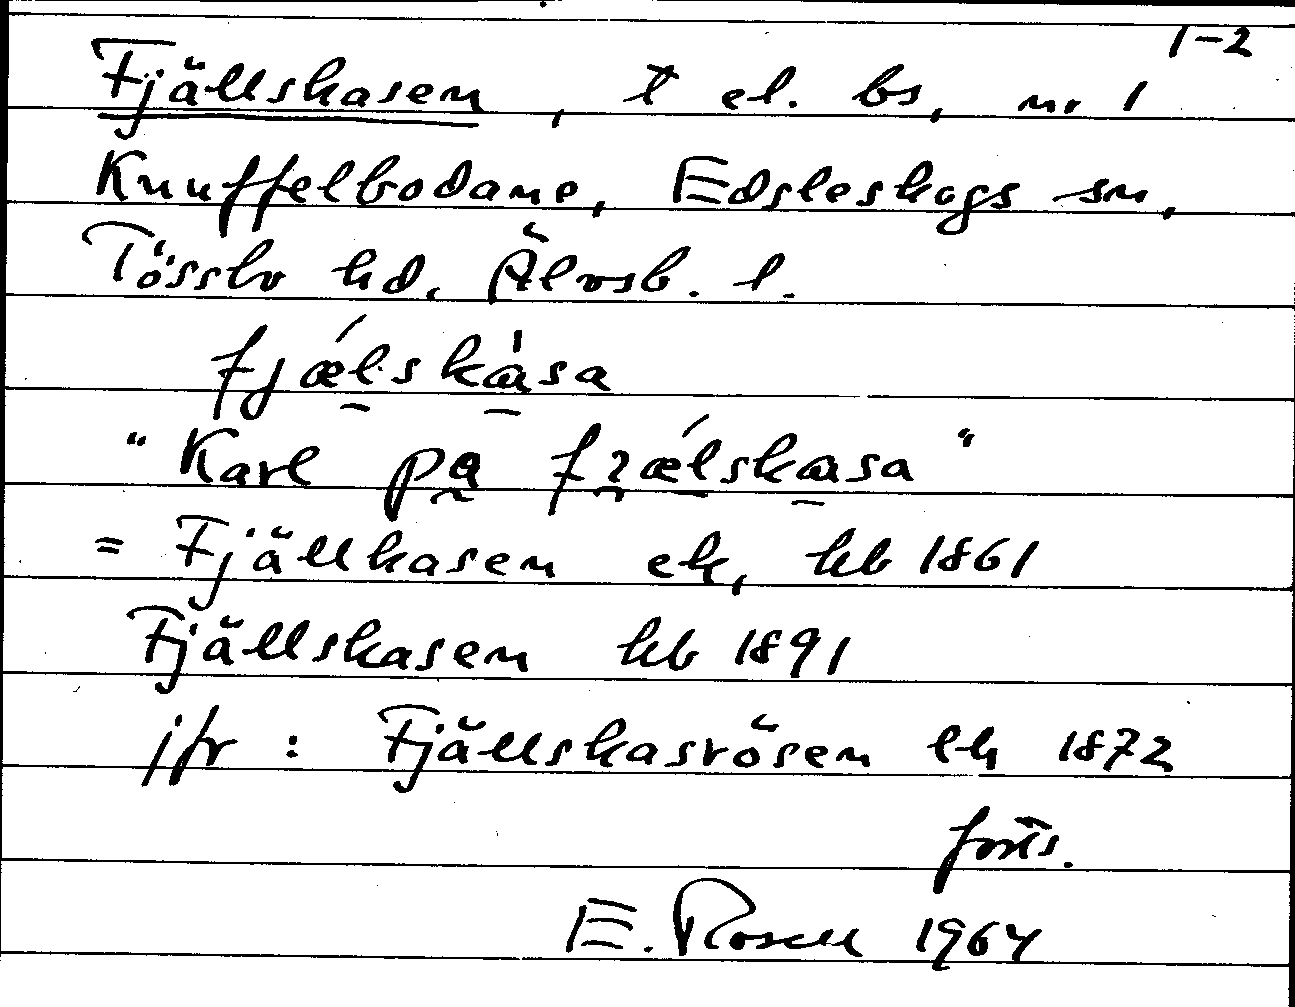 1-2
Fjällskasen, t el. bs, nr 1
Knuffelbodane, Edsleskogs sn,
Tössbo hd. Älvsb. l.
fjǽlskàsa
“Karl på fjǽlskasa“
= Fjällkasen ek, hb 1861
Fjällskasen hb 1891
jfr: Fjällskasrösen lh 1872
forts.
E. Rosell 1964